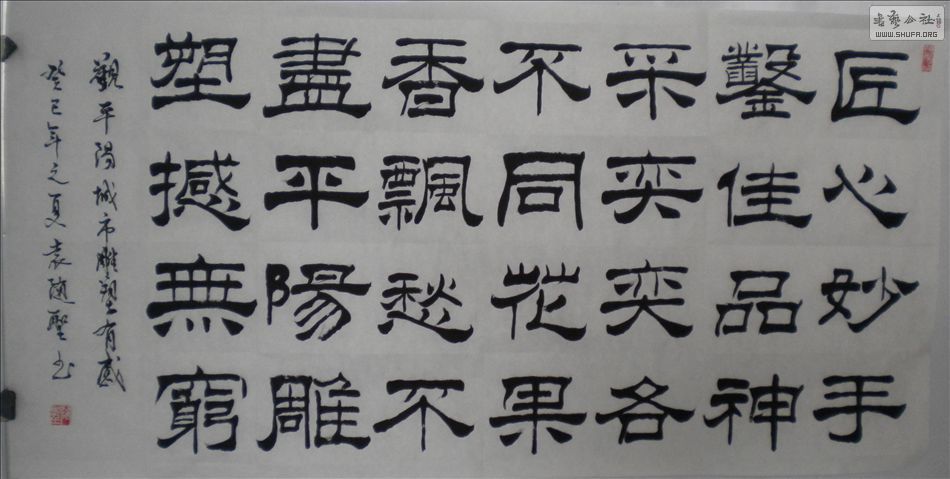 匠心妙手
鑿佳品神
采奕奕各
不同花果
香飄愁不
盡平陽雕
塑撼無窮
觀平陽城市雕塑有感
癸巳年之夏袁隨聖书
書藝公社
WWW.SHUFA.ORG